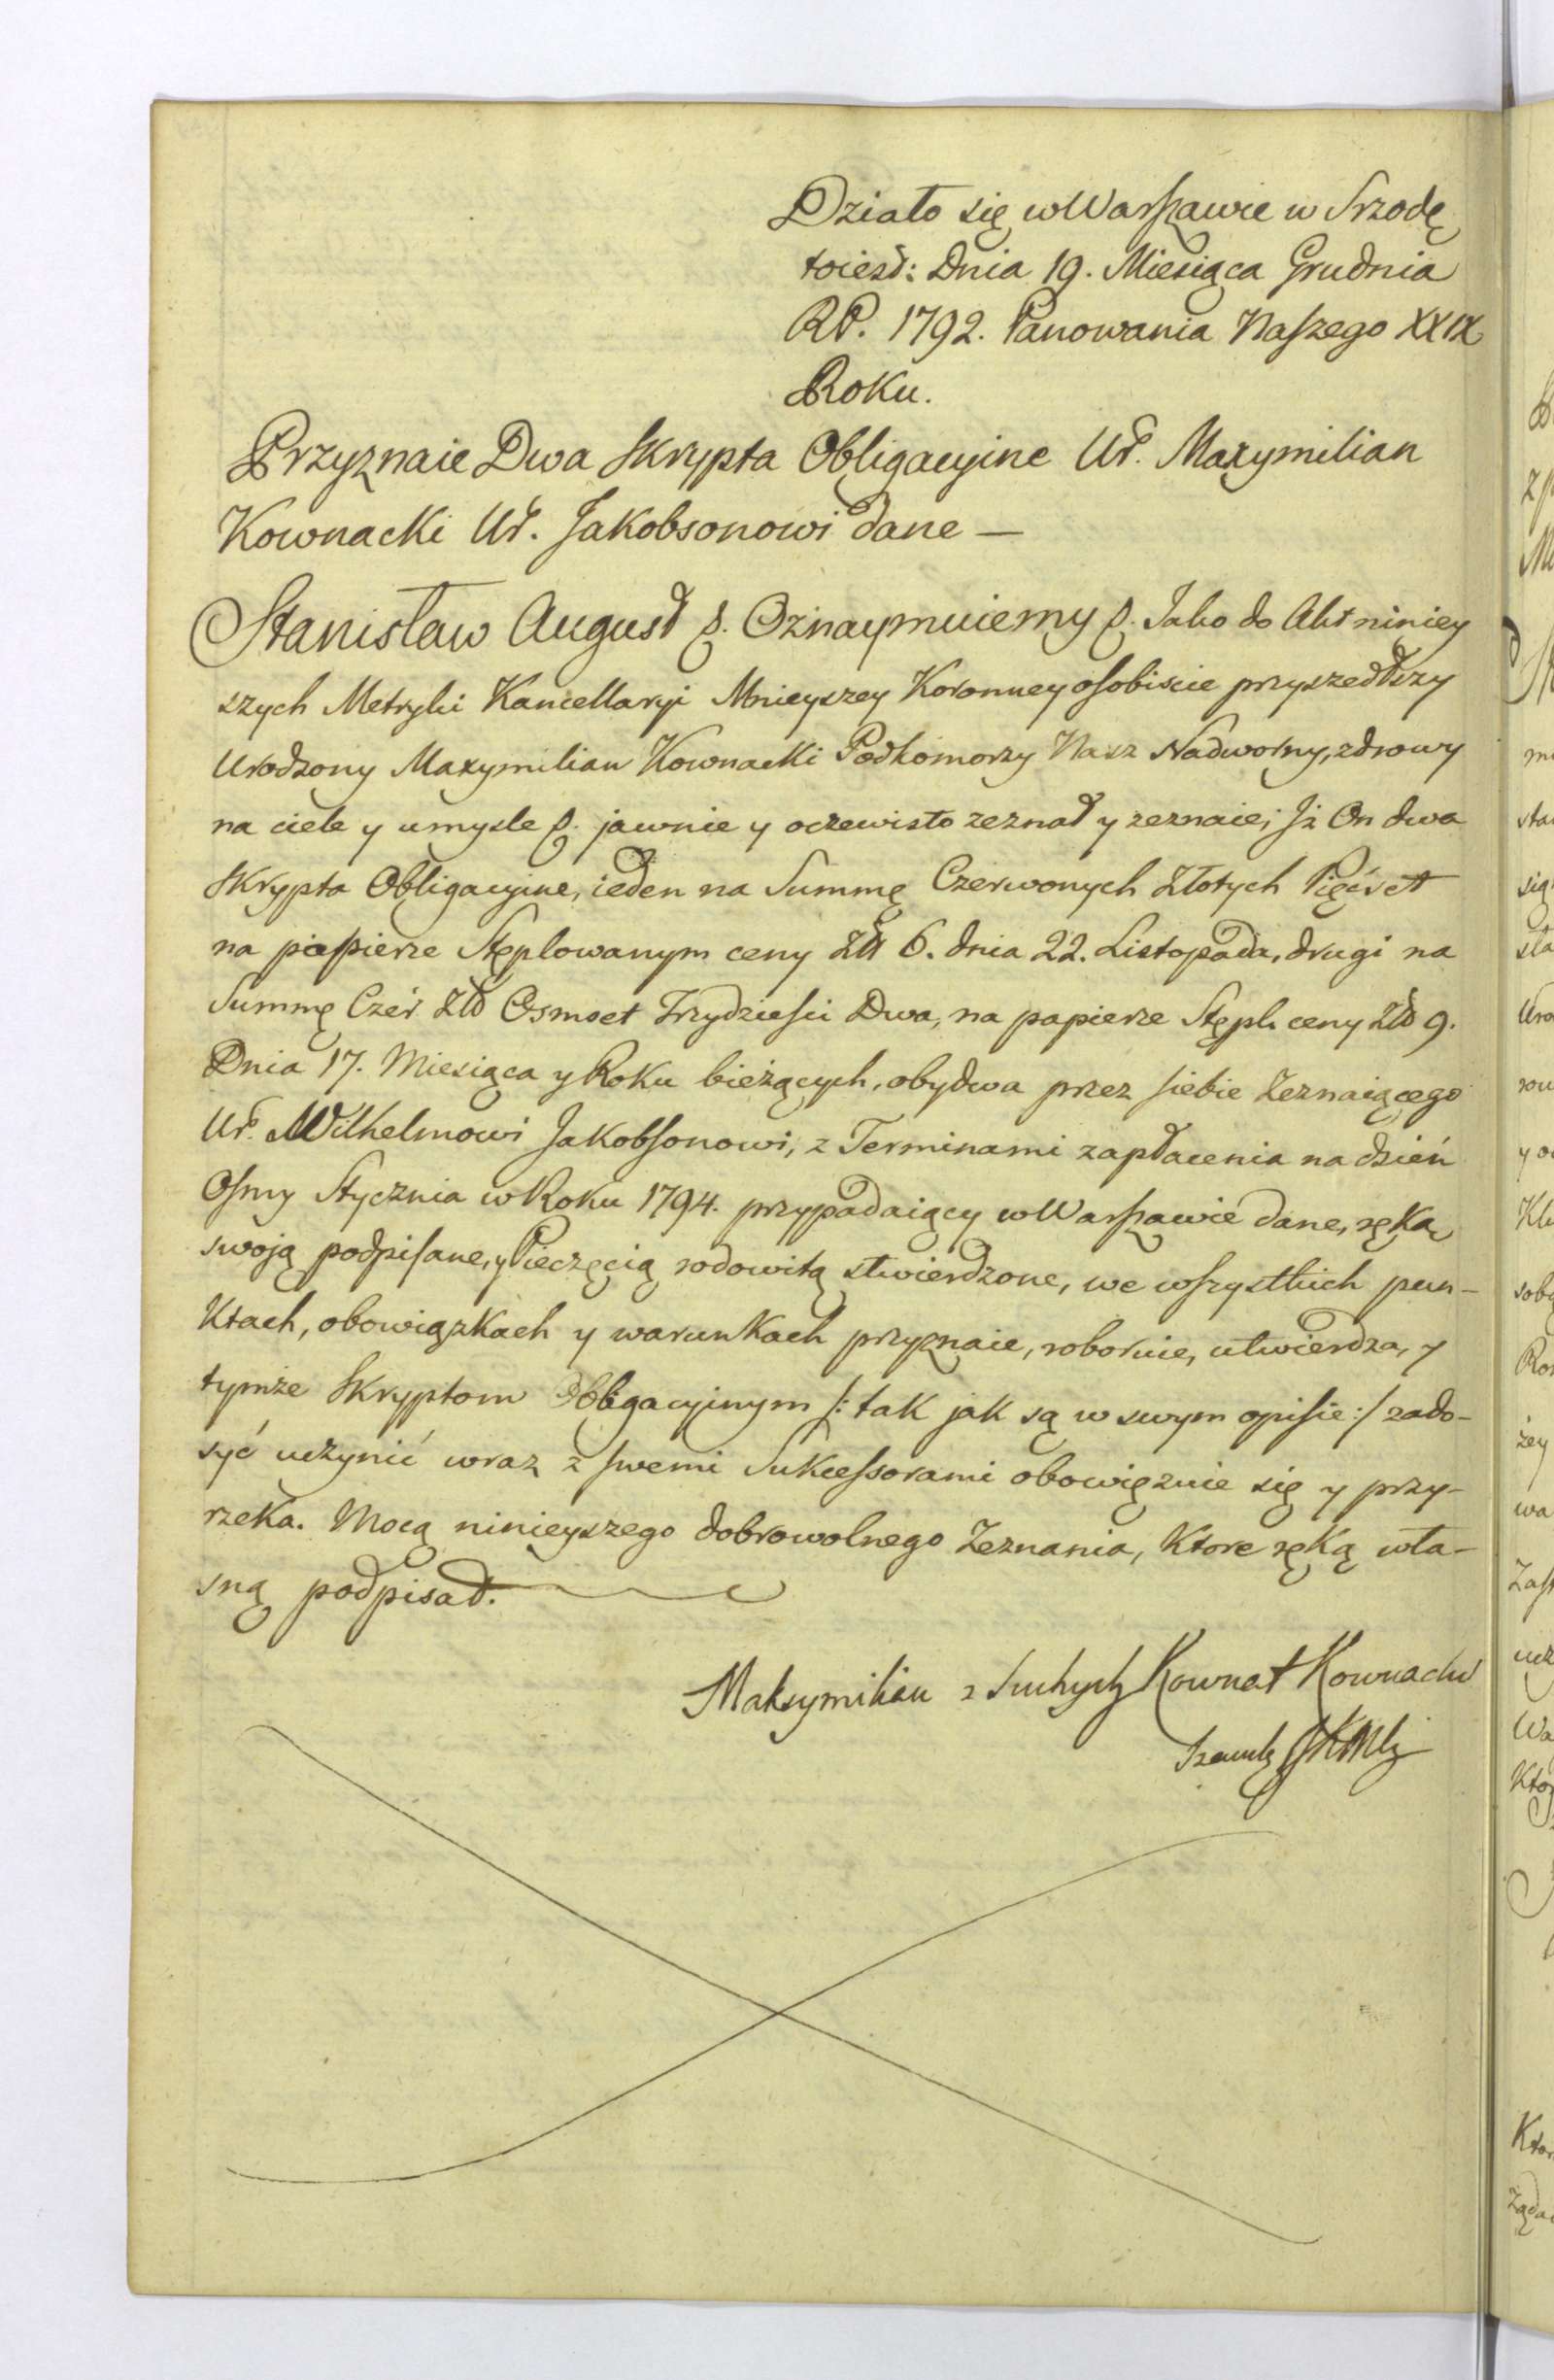 Działo się w Warszawie w Srzodę
to iest: Dnia 19. Miesiąca Grudnia
RP. 1792. Panowania Naszego XXIX
Roku.
Przyznaie Dwa Skrypta Obligacyine Ur. Maxymilian
Kownacki Ur. Jakobsonowi dane —
Stanisław August &. Oznaymuiemy &. Jako do Akt niniey
szych Metryki Kancellaryi Mnieyszey Koronney osobiscie przyszedłszy
Urodzony Maxymilian Kownacki Podkomorzy Nasz Nadworny, zdrowy
na ciele y umysle &. jawnie y oczewisto zeznał y zeznaie; Jż On dwa
Skrypta Obligacyine, ieden na Summę Czerwonych Złotych Pięćset
na papierze Stęplowanym ceny Złł 6. dnia 22. Listopada, drugi na
Summę Czer. Złł Osmset Trzydzieści Dwa, na papierze Stępl. ceny Złł 9.
Dnia 17. Miesiąca y Roku bieżących, obydwa przez siebie Zeznaiącego
Ur. Wilhelmowi Jakobsonowi, z Terminami zapłacenia na dzień
Osmy Stycznia w Roku 1794. przypadaiący w Warszawie dane, ręką
swoją podpisane, y Pieczęcią rodowitą stwierdzone, we wszystkich pun-
ktach, obowiązkach y warunkach przyznaie, roboruie, utwierdza, y
tymże Skryptom Obligacyinym /: tak jak są w swym opisie :/ zado-
syć uczynić wraz z swemi Sukcessorami obowięzuie się y przy-
rzeka. Mocą ninieyszego dobrowolnego Zeznania, Ktore ręką wła-
sną podpisał.
Maksymilian z Kownat Kownacki